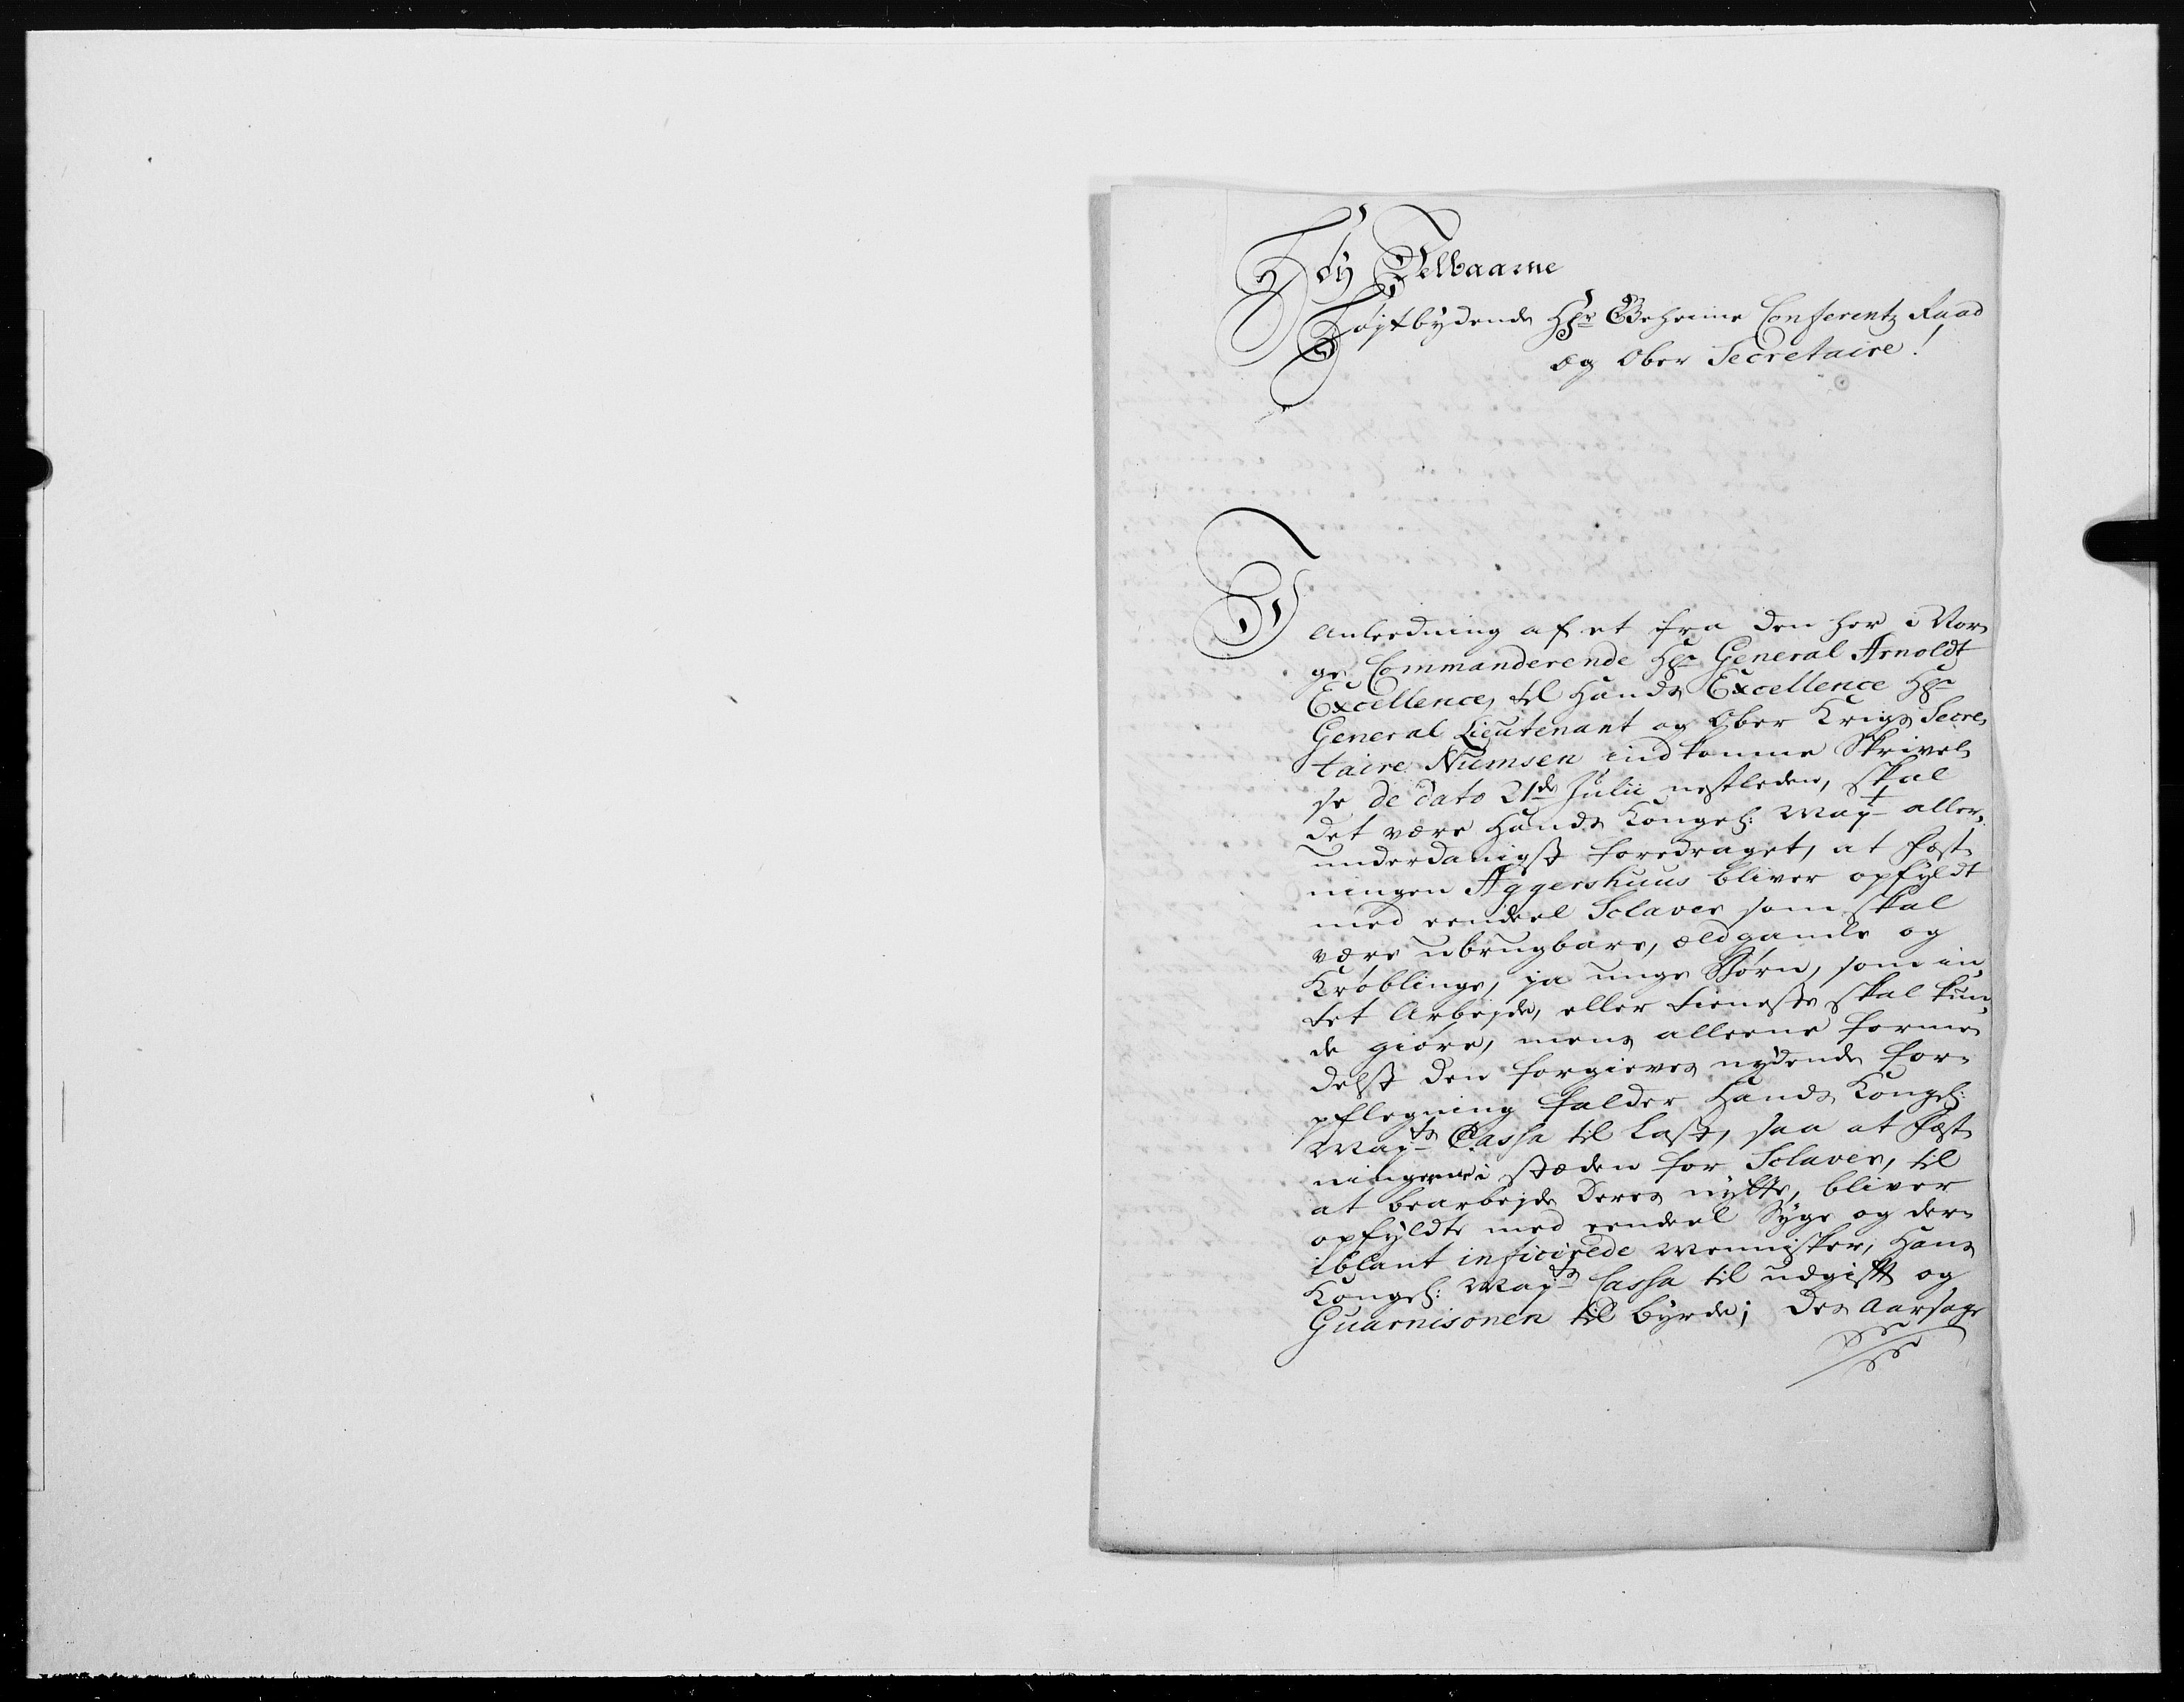 Høy Velbaarne
Høytbydende Hr Geheime Conferentz Raad
og Ober Secretaire!
I
Anleedning af et fra den her i Nor¬
ge Commanderende Hr General Arnoldt
Excellence, til Hands Excellence Hr
General Lieutenant og Ober Krigs Secre¬
taire Numsen indkomme Skrivel¬
se de dato 21de Julii nestleden, skal
det være Hands Kongel: May:t aller¬
underdanigst foredraget, at Fæst¬
ningen Aggershuus bliver opfyldt
med eendeel Sclaver som skal
være ubrugbare, ældgamle og
Krøblinge, ja unge Børn, som in¬
tet Arbejde, eller tieneste skal kun¬
de giøre, mens alleene forme¬
delst den forgieves nydende for¬
pflegning falder Hands Kongel:
May:ts Cassa til Last, saa at Fæst¬
ningerne i stæden for Sclaver, til
at bearbejde Deres nytte, bliver
opfyldte med eendeel Syge og der¬
iblant inficirede Mennisker, Hans
Kongel: May:ts Cassa til udgift og
Guarnisonen til byrde; Des Aarsage